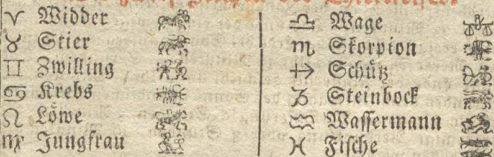 ♈ Widder
♉ Stier
♊ Zwilling
♋ Krebs
♌ Löwe
♍ Jungfrau
♎ Wage
♏ Skorpion
♐ Schütz
♑ Steinbock
♒ Wassermann
♓ Fische